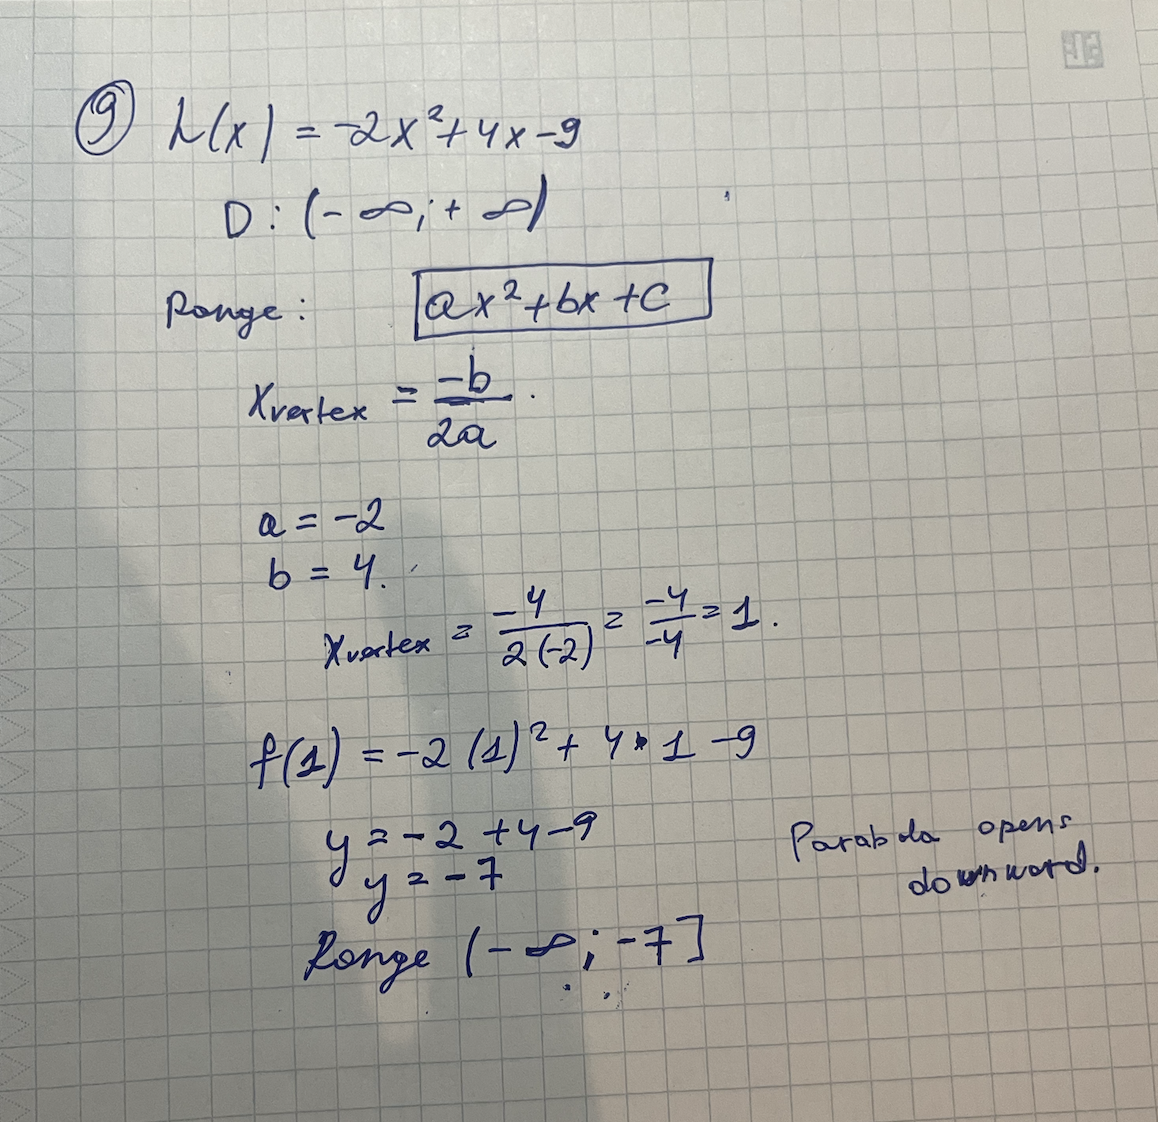 9 h(x) = -2x²+4x-9
D: (-∞;+ ∞)
Range: ax²+bx+c
Xvertex = -b/2a.
a = -2
b = 4.
Xvertex = -4/2(-2) = -4/-4 = 1.
f(1) = -2(1)²+ 4·1 -9
y = -2 +4-9
y = -7
Parabola opens
downward.
Range (-∞; -7]